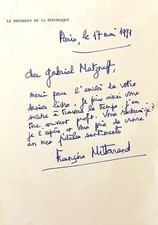 LE PRÉSIDENT DE LA RÉPUBLIQUE
Paris, le 17 mai 1991
cher Gabriel Matzneff,
merci pour l'envoi de votre
livre. Je puis ainsi vous
suivre à travers le temps. J'en
tire, souvent profit.
je l'espère et vous prie de croire
en mes fidèles sentiments
François Mitterrand